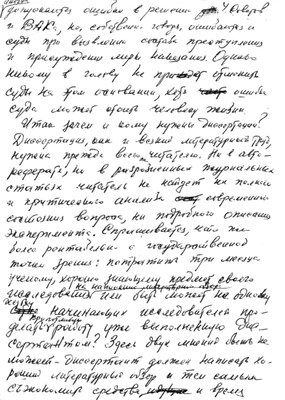 допускаются ошибки в решении Советов
и ВАКа, но, собственно говоря, ошибаются и
суды при выявлении состава преступления
и присуждении меры наказания. Однако
никому в голову не придет отменить
суды на том основании, что ошибка
суда может стоить человеку жизни.
Итак зачем и кому нужны диссертации?
Диссертация, как и всякий литературный труд,
нужна прежде всего читателю. Ни в авто-
реферате, ни в разрозненных журнальных
статьях читатель не найдет ни полного
и критического анализа современного
состояния вопроса, ни подробного описания
эксперимента. Спрашивается, что же
более рентабельно с государственной
точки зрения: потратить три месяца
на написание литературного обзора
ученому, хорошо знающему предмет своего
исследования или быть может не одному
начинающих исследователей про-
делать работу уже выполненную дис-
сертантом? Здесь двух мнений быть не
может - диссертант должен написать хо-
роший литературный обзор и тем самым
сэкономить средства и время